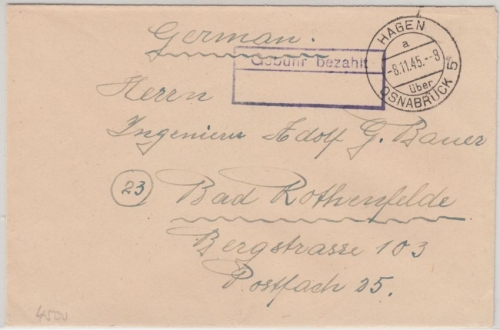 German.
Gebühr bezahlt
HAGEN
a
-8.11.45.-8
über
OSNABRÜCK 5
Herrn
Ingenieur Adolf G. Bauer
(23) Bad Rothenfelde
Bergstrasse 103
Postfach 25.